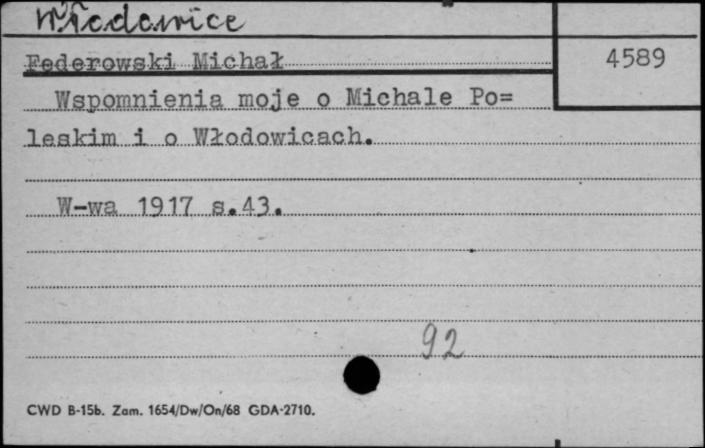 Włodowice
Federowski Michał
4589
Wspomnienia moje o Michale Po=
leskim i o Włodowicach.
W-wa 1917 s.43.
92
CWD B-15b. Zam. 1654/Dw/On/68 GDA-2710.